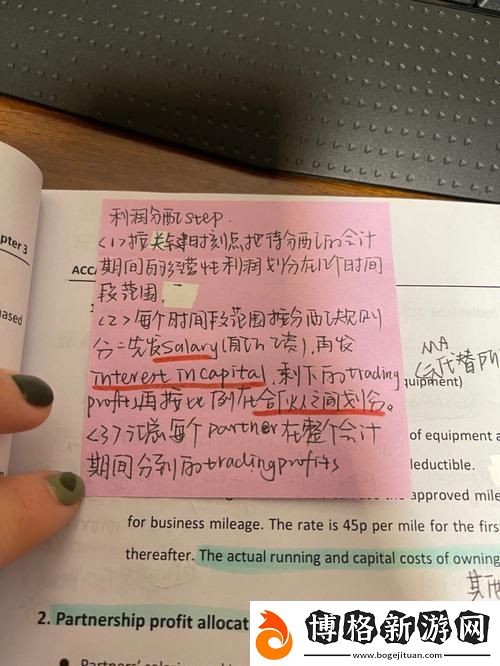 利润分配step.
<1>按关键时刻点,把待分配的会计
期间的经营性利润划分在几个时间
段范围.
<2>每个时间段范围按分配规则
分=先发salary(前N资),再发
interest in capital,剩下的trading
profit,再按比例在合伙人之间划分。
<3>汇总每个partner在整个会计
期间分到的trading profits
pter 3
ACCA
ased
MA
会代替
quipment)
of equipment a
deductible.
approved mile
for business mileage. The rate is 45p per mile for the first
thereafter. The actual running and capital costs of owning
其
2. Partnership profit allocat
Partners'
博格新游网
www.bogejituan.com